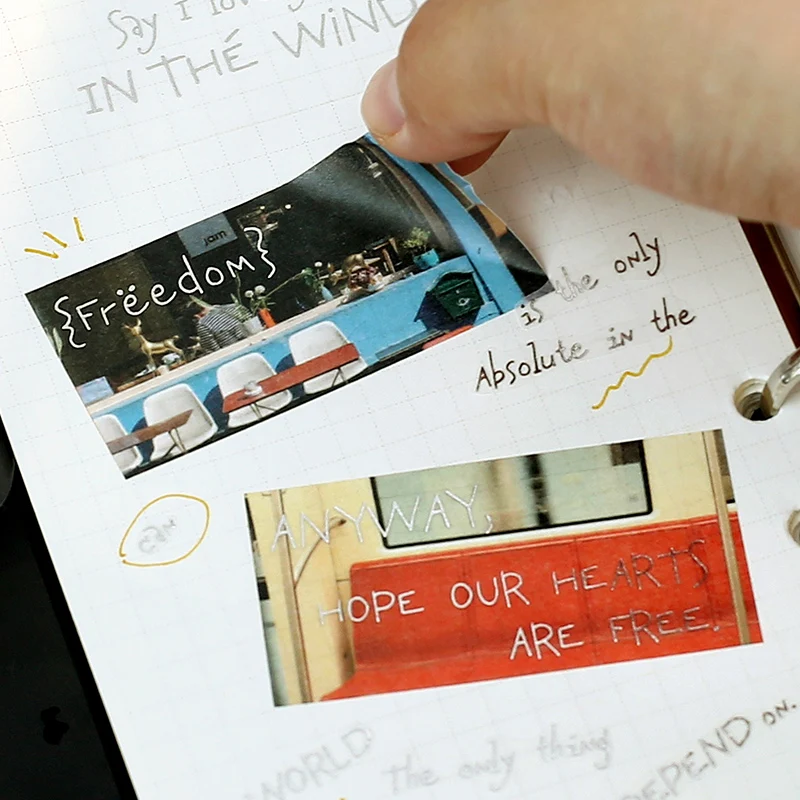 Say I lo
IN THÉ WIND
jam
{Frëedom}
is the only
Absolute in the
can
ANYWAY,
HOPE OUR HEARTS
ARE FREE.
WORLD
the only thing
DEPEND ON.